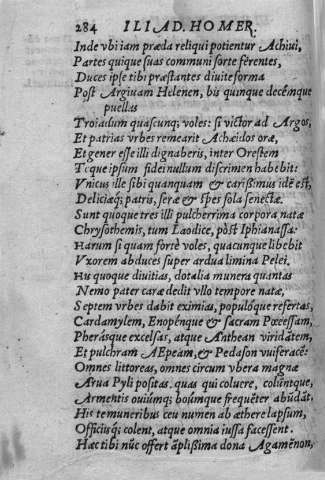 284 ILIAD. HOMER.
Inde vbi iam præda reliqui potientur Achiui,
Partes quique suas communi sorte ferentes,
Duces ipse tibi præstantes diuite forma
Post Argiuam Helenen, bis quinque decémque
puellas
Troiadum quascunq; voles: si victor ad Argos,
Et patrias vrbes remearit Achæidos oræ,
Et gener esse illi dignaberis, inter Orestem
Teque ipsum fidei nullum discrimen habebit:
Vnicus ille sibi quanquam & carißimus idē est,
Deliciæq; patris, seræ & spes sola senectæ.
Sunt quoque tres illi pulcherrima corpora natæ
Chrysothemis, tum Laodice, pòst Iphianassa:
Harum si quam fortè voles, quacunque libebit
Vxorem abduces super ardua limina Pelei.
Hu quoque diuitias, dotalia munera quantas
Nemo pater caræ dedit vllo tempore natæ,
Septem vrbes dabit eximias, populóque refertas,
Cardamylem, Enopénque & sacram Pœeessam,
Pherásque excelsas, atque Anthean viridātem,
Et pulchram AEpeam, & Pedason vuiferacē:
Omnes littoreas, omnes circum vbera magnæ
Arua Pyli positas. quas qui coluere, colúntque,
Armentis ouiúmq; boúmque frequēter abūdāt,
His te muneribus ceu numen ab æthere lapsum,
Officiisq; colent, atque omnia iussa facessent.
Hæc tibi nūc offert āplißima dona Agamēnon,